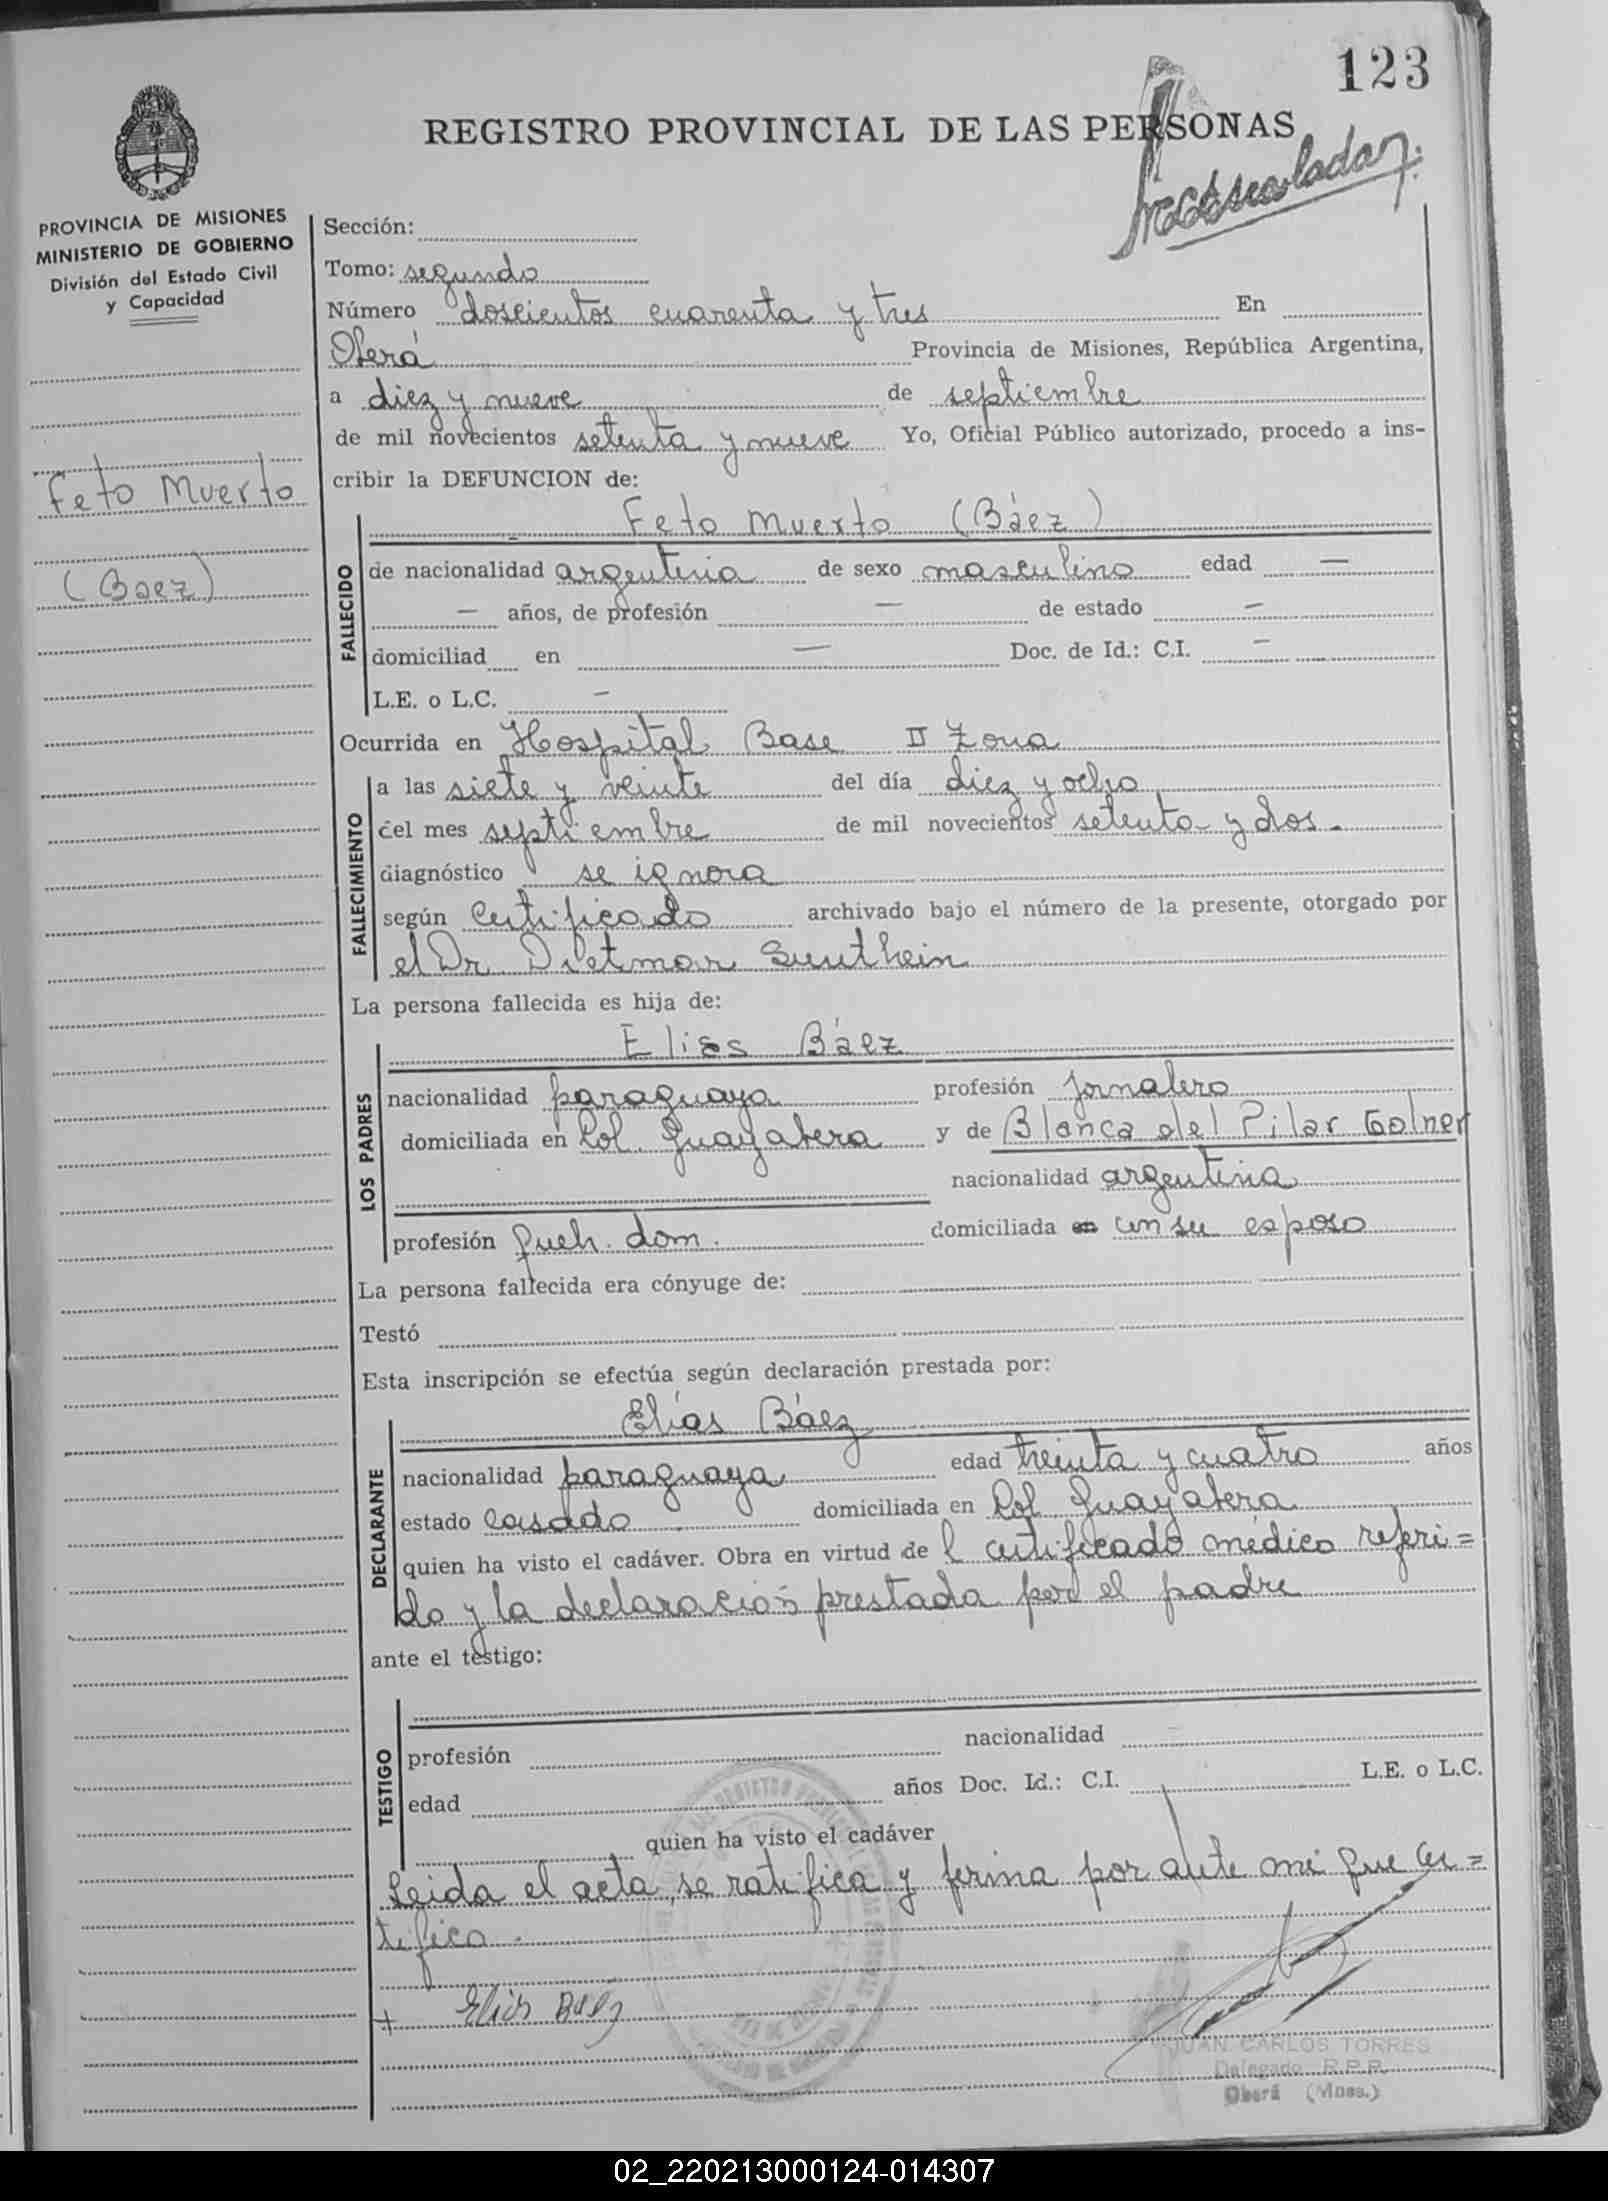 123
REGISTRO PROVINCIAL DE LAS PERSONAS
PROVINCIA DE MISIONES
MINISTERIO DE GOBIERNO
División del Estado Civil
y Capacidad
Feto Muerto
(Baez)
Sección:
Tomo: segundo
Número doscientos cuarenta y tres En
Oberá Provincia de Misiones, República Argentina,
a diez y nueve de septiembre
de mil novecientos setenta y nueve Yo, Oficial Público autorizado, procedo a ins-
cribir la DEFUNCION de:
Feto Muerto (Báez)
FALLECIDO
de nacionalidad argentina de sexo masculino edad —
— años, de profesión — de estado —
domiciliad en — Doc. de Id.: C.I. —
L.E. o L.C. —
Ocurrida en Hospital Base II Zona
FALLECIMIENTO
a las siete y veinte del día diez y ocho
del mes septiembre de mil novecientos setenta y dos.
diagnóstico se ignora
según Certificado archivado bajo el número de la presente, otorgado por
el Dr Dietmar
La persona fallecida es hija de:
Elías Báez
LOS PADRES
nacionalidad paraguaya profesión jornalero
domiciliada en Col. Guayabera y de Blanca del Pilar Golner
nacionalidad argentina
profesión queh. dom. domiciliada en con su esposo
La persona fallecida era cónyuge de:
Testó
Esta inscripción se efectúa según declaración prestada por:
Elías Báez
DECLARANTE
nacionalidad paraguaya edad treinta y cuatro años
estado casado domiciliada en Col Guayabera
quien ha visto el cadáver. Obra en virtud de l certificado médico referi=
do y la declaración prestada por el padre
ante el testigo:
TESTIGO
nacionalidad
profesión
edad años Doc. Id.: C.I. L.E. o L.C.
quien ha visto el cadáver
Leida el acta, se ratifica y firma por ante mi que cer=
tifico.
+ Elias Baez
JUAN CARLOS TORRES
Delegado R.P.P.
Oberá (Mnes.)
02_220213000124-014307